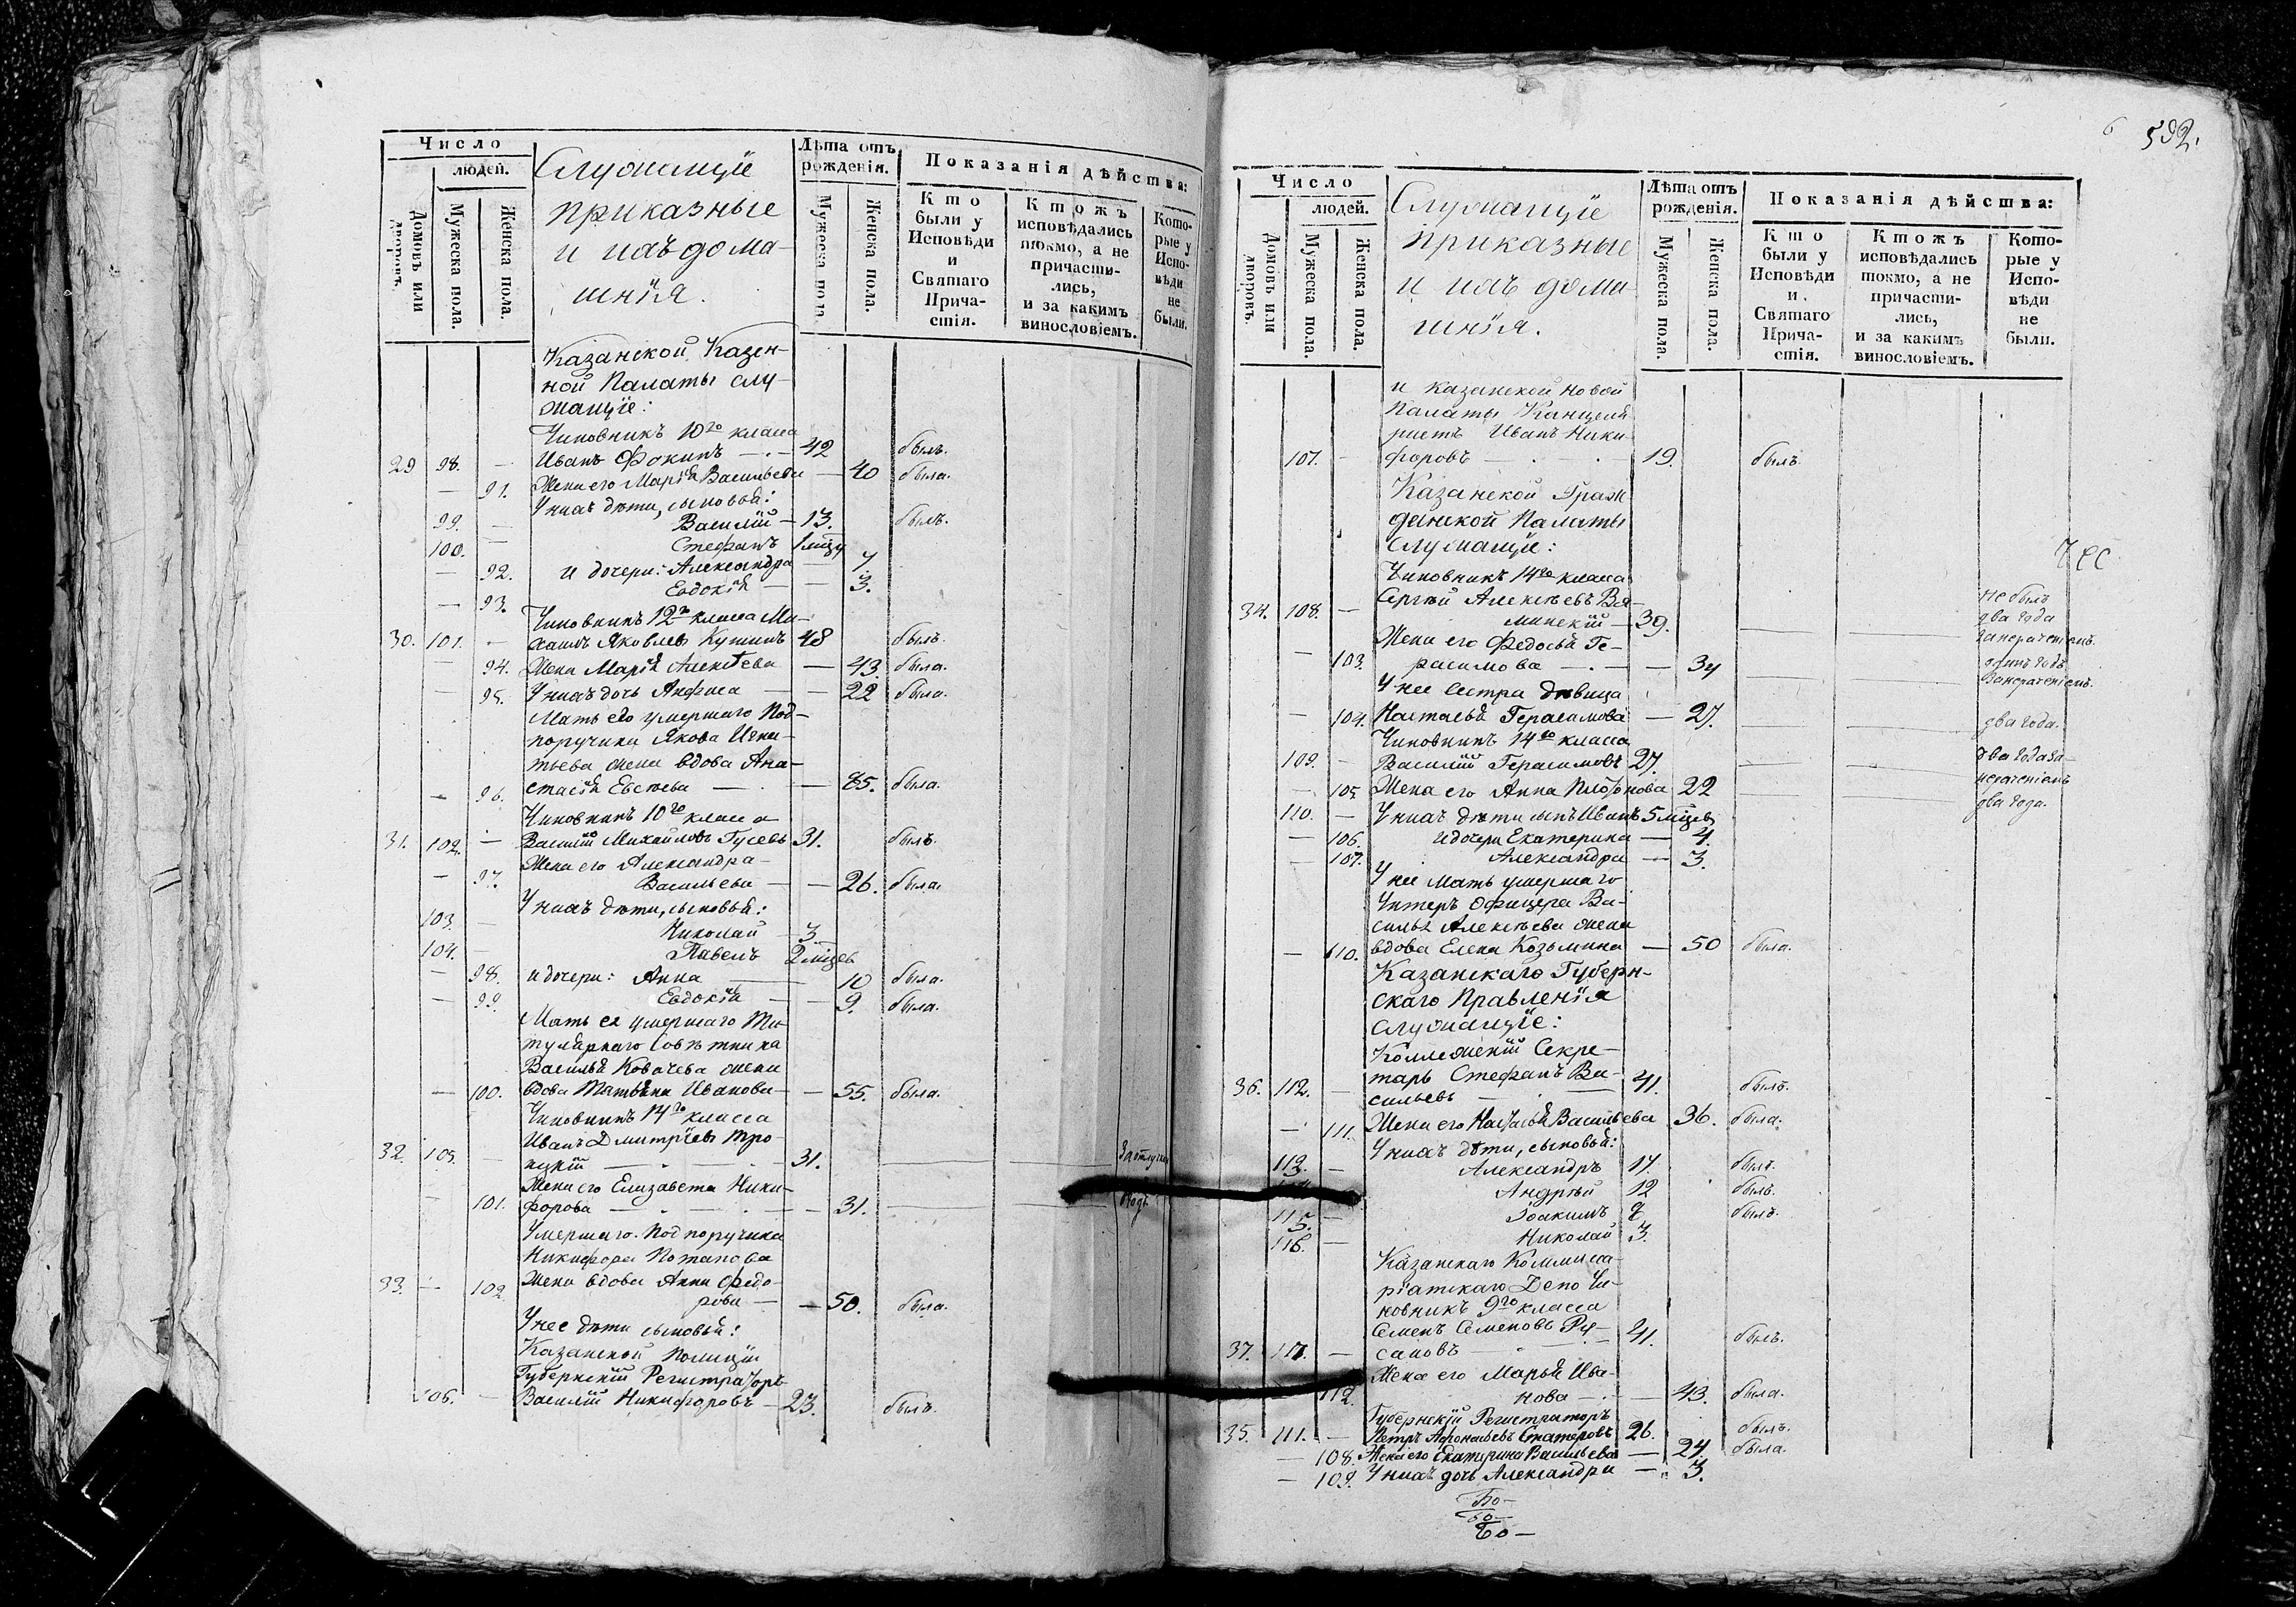 Число
людей.
Домовъ или дворовъ.
Мужеска пола.
Женска пола.
Служащіе
приказные
и ихъ дома-
шнія.
Лѣта отъ рожденія.
Мужеска пола.
Женска пола.
Показанія дѣйства:
Кто были у Исповѣди и Святаго Причастія.
Ктожъ исповѣдались токмо, а не причастились, и за какимъ винословіемъ.
Которые у Исповѣди не были.
Казанской Казен-
ной Палаты слу-
жащіе:
Чиновникъ 10го класса
29 98. — Иванъ Фокинъ — 42 былъ.
— 91. Жена его Марія Васильева — 40 была.
У нихъ дѣти, сыновья:
99. — Василій — 13. былъ.
100. — Стефанъ 1 мцъ
— 92. и дочери: Александра — 7.
— 93. Евдокія — 3.
Чиновникъ 12го класса Ми-
30. 101. — хаилъ Яковлевъ Кушинъ 48 былъ.
— 94. Жена Марія Алексѣева — 43. была.
— 95. У нихъ дочь Анфиса — 22 была.
Мать его умершаго Под-
поручика Якова Игна-
тьева жена вдова Ана-
— 96. стасія Евсѣева — 85. была.
Чиновникъ 10го класса
31. 102. — Василій Михайловъ Гусевъ 31. былъ.
Жена его Александра
— 97. Васильева — 26. была.
У нихъ дѣти, сыновья:
103. — Николай — 3
104. — Павелъ 2 мцев
— 98. и дочери: Анна — 10 была.
— 99. Евдокія — 9. была.
Мать ея умершаго Ти-
тулярнаго Совѣтника
Василья Ковачева жена
— 100. вдова Татьяна Иванова — 55. была.
Чиновникъ 14го класса
Иванъ Дмитріевъ Тро-
32. 105. — ицкій — 31.
Жена его Елизавета Ники-
— 101. форова — 31.
Умершаго Подпоручика
Никифора Потапова
33. — 102. Жена вдова Анна Федо-
рова — 50. была.
У нее дѣти сыновья:
Казанской Полиціи
Губернскій Регистраторъ
106. — Василій Никифоровъ — 23. былъ.
592.
Число
людей.
Домовъ или дворовъ.
Мужеска пола.
Женска пола.
Служащіе
приказные
и ихъ дома-
шнія.
Лѣта отъ рожденія.
Мужеска пола.
Женска пола.
Показанія дѣйства:
Кто были у Исповѣди и Святаго Причастія.
Ктожъ исповѣдались токмо, а не причастились, и за какимъ винословіемъ.
Которые у Исповѣди не были.
и Казанской новой
Палаты Канцеля-
ристъ Иванъ Ники-
107. — форовъ — 19. былъ.
Казанской Граж-
данской Палаты
служащіе:
Чиновникъ 14го класса
34. 108. — Сергѣй Алексѣевъ Ва-
минскій — 39. не былъ два года
— 103. Жена его Федосья Ге-
расимова — 34 одинъ годъ
У нее сестра дѣвица
— 104. Настасья Герасимова — 27. два года.
Чиновникъ 14го класса
109. — Василій Герасимовъ 27. два года
— 105. Жена его Анна Платонова 22 два года.
110. — У нихъ дѣти сынъ Иванъ 5 мцевъ
— 106. и дочери Екатерина — 4.
— 107. Александра — 3.
У нее мать умершаго
Унтеръ Офицера Ва-
силья Алексѣева жена
— 110. вдова Елена Козьмина — 50 была.
Казанскаго Губерн-
скаго Правленія
служащіе:
Коллежскій Секре-
36. 112. — тарь Стефанъ Ва-
сильевъ — 41. былъ.
— 111. Жена его Настасья Васильева 36. была.
У нихъ дѣти, сыновья:
113. — Александръ 17. былъ.
Андрѣй 12 былъ.
115. — Іоакимъ былъ.
116. — Николай 3.
Казанскаго Коммиса-
ріатскаго Депо Чи-
новникъ 9го класса
Семенъ Семеновъ Ру-
37. 117. — сановъ — 41. былъ.
Жена его Марья Ива-
112. нова — 43. была.
Губернскій Регистраторъ
35. 111. — Петръ Афонасьевъ Снатеровъ 26. былъ.
— 108. Жена его Екатерина Васильева — 24 была.
— 109. У нихъ дочь Александра — 3.
Бо-
Бо-
Бо-